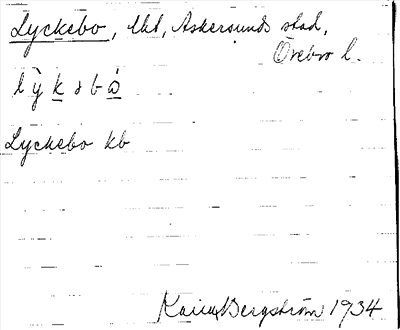 Lyckebo, lht, Askersunds stad,
Örebro l.
lỳkəbò
Lyckebo kb
Karin Bergström 1934